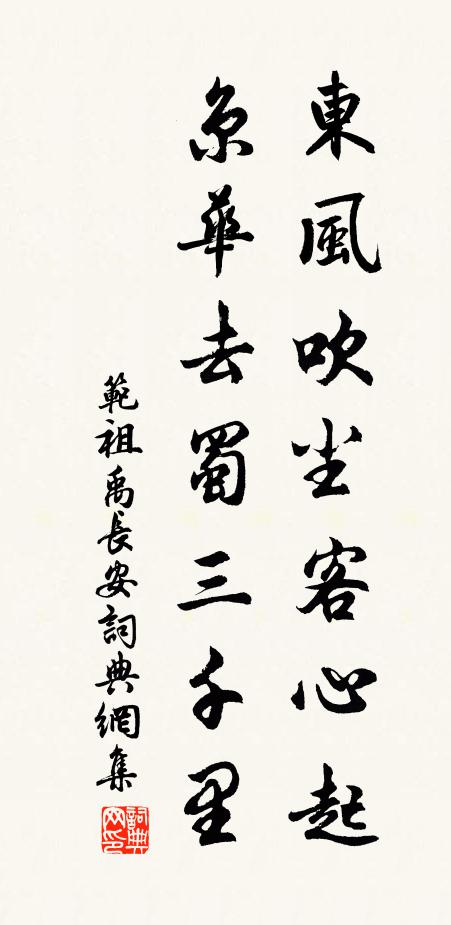 東風吹尘客心起
京華去蜀三千里
範祖禹長安詞典網集
詞典网印